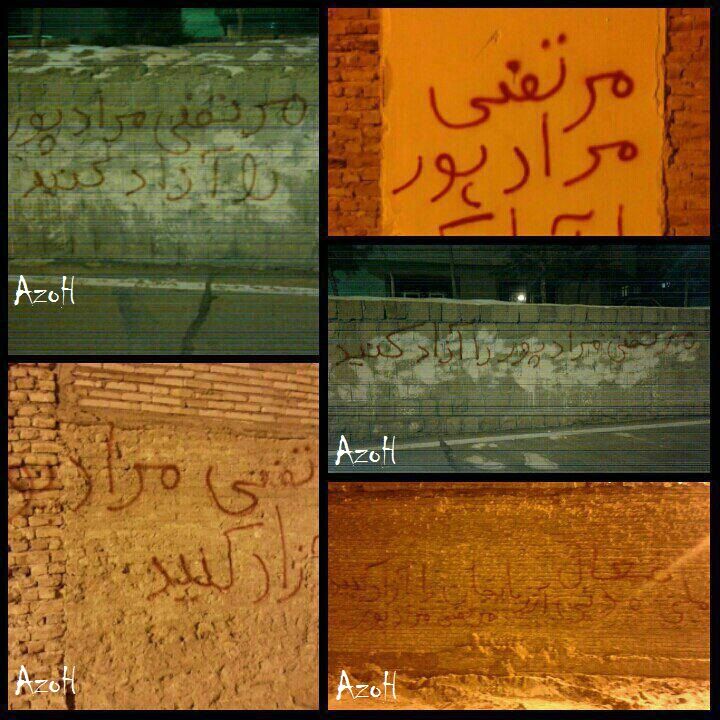 مرتضی مراد پور
را آزاد کنید
AzoH
مرتضی
مراد پور
مرتضی مراد پور را آزاد کنید
AzoH
تضی مراد پو
زاد کنید
AzoH
آذربایجان را آزاد کنید
مرتضی مراد پور
AzoH